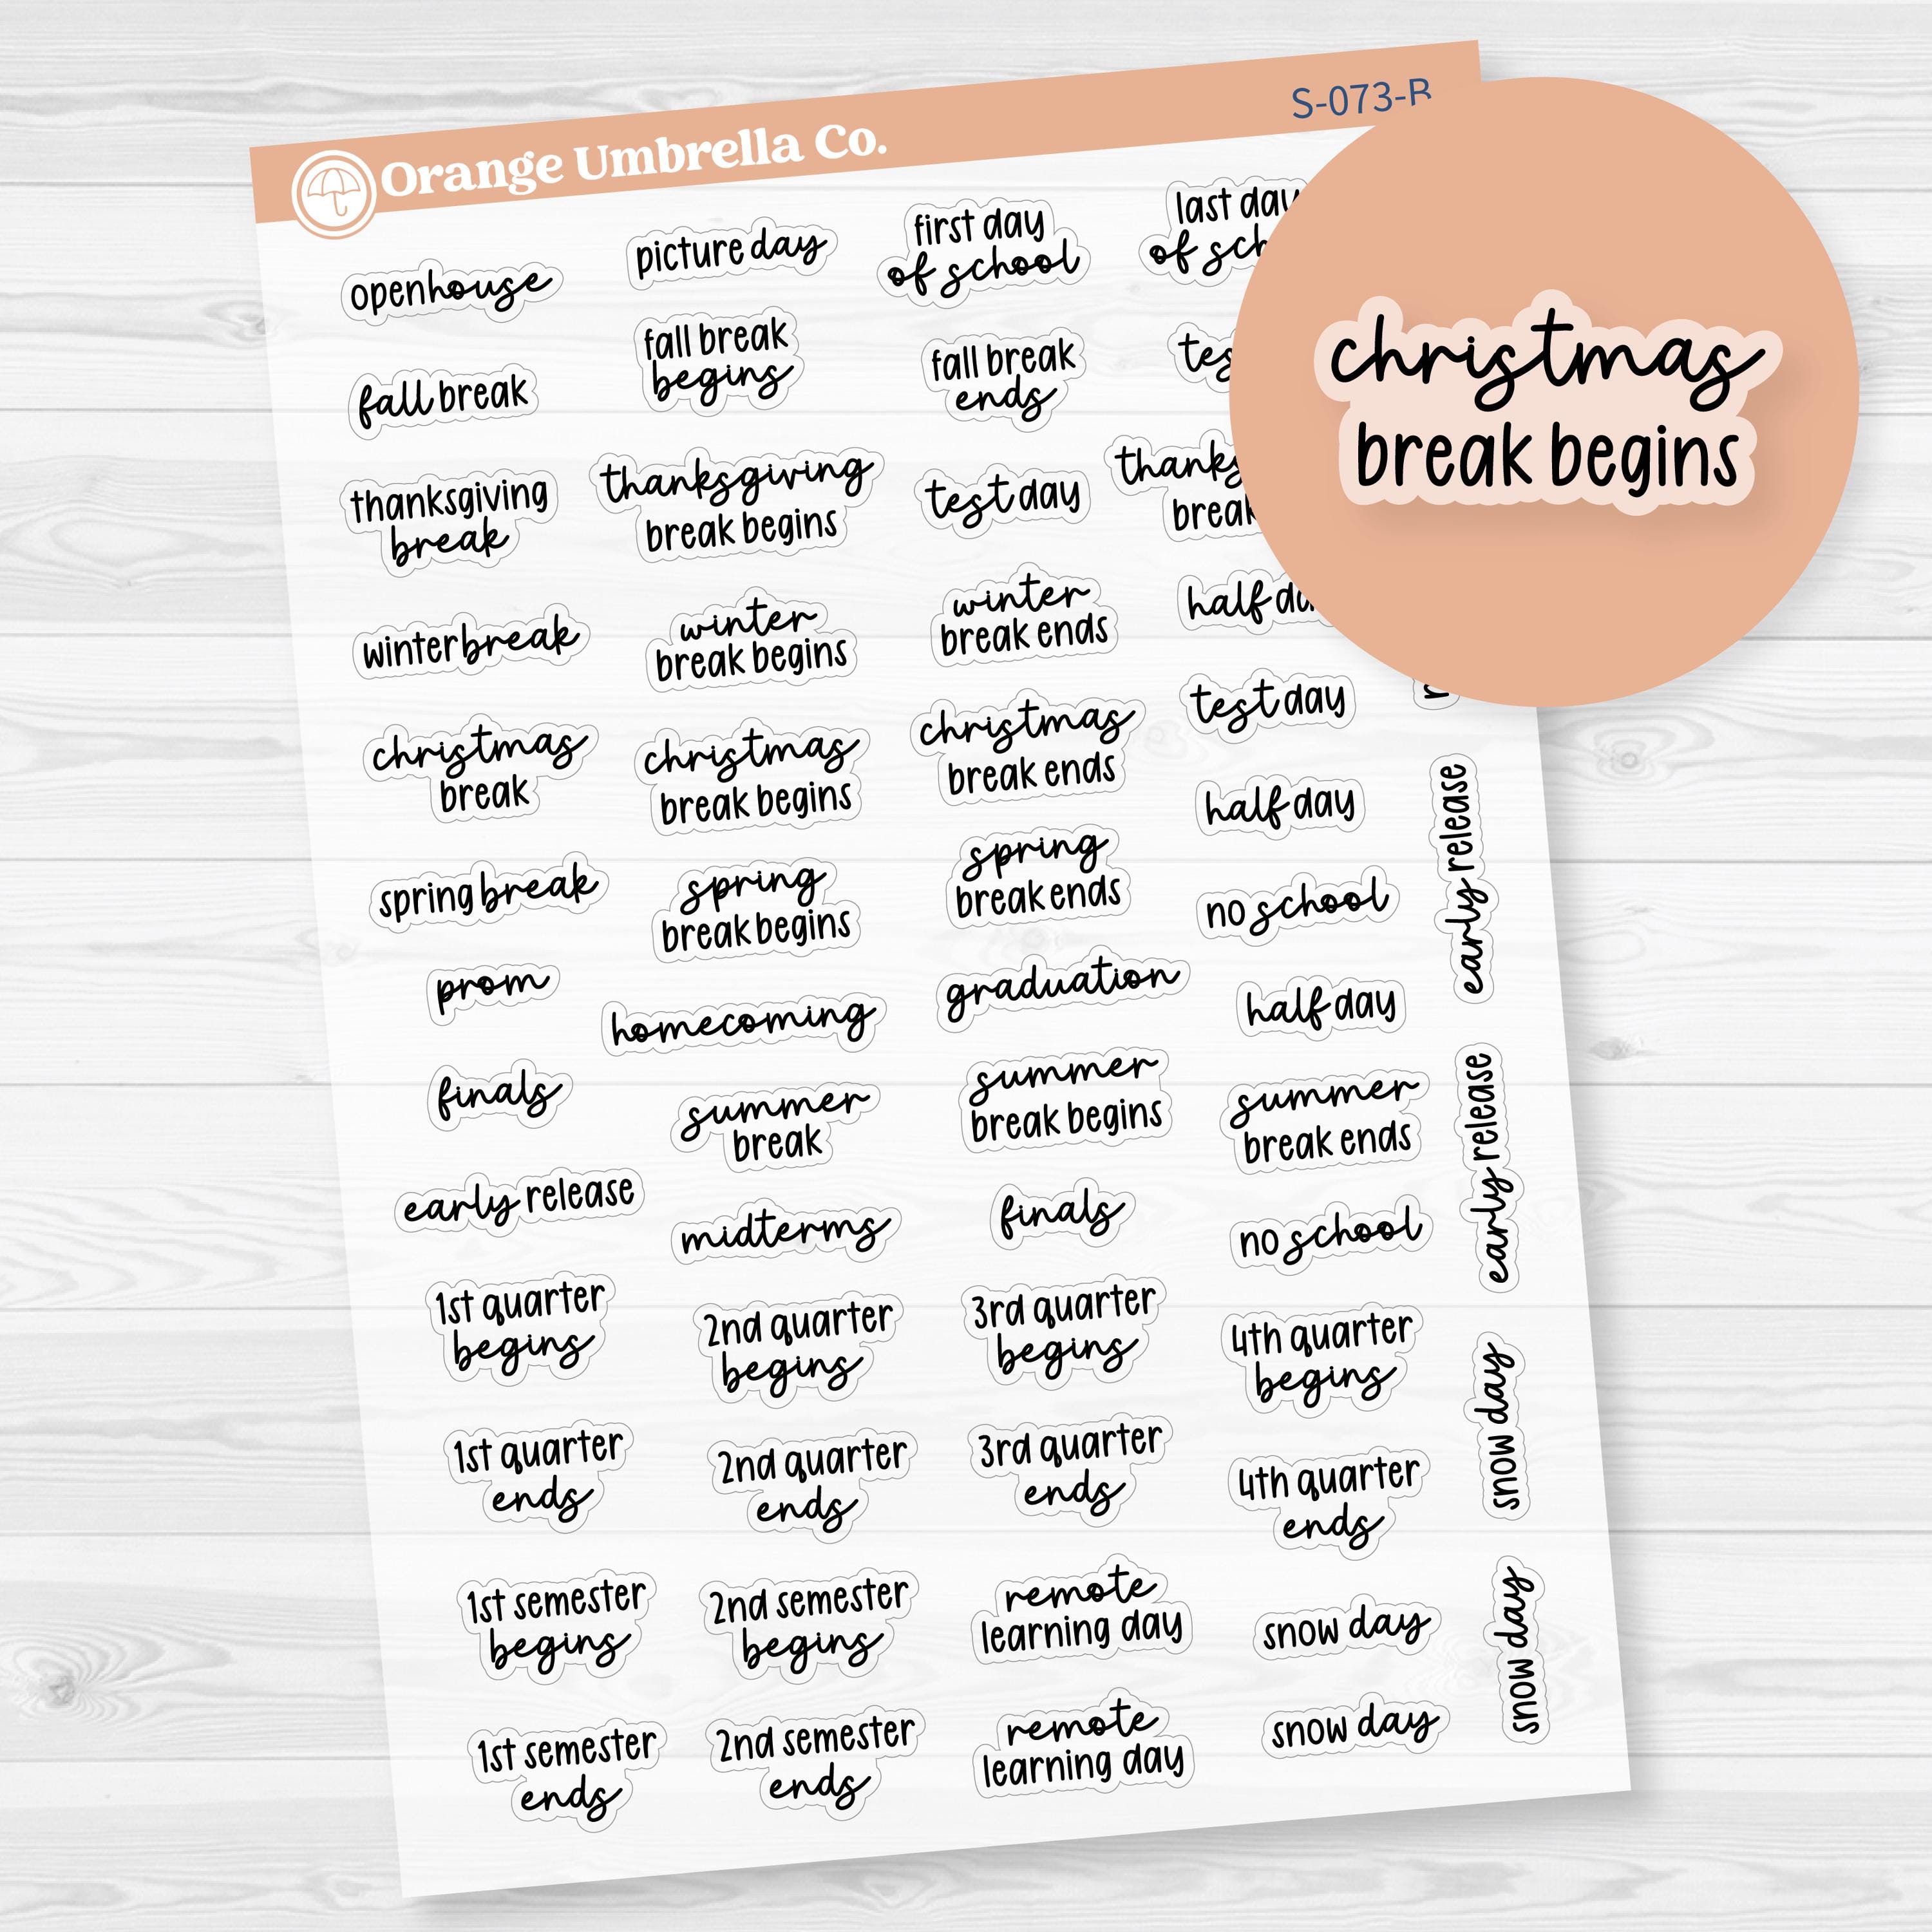 Orange Umbrella Co.
S-073-B
openhouse
picture day
first day
of school
last day
of
fall break
fall break
begins
fall break
ends
thanksgiving
break
thanksgiving
break begins
test day
winter break
winter
break begins
winter
break ends
half
christmas
break
christmas
break begins
christmas
break ends
test day
half day
spring break
spring
break begins
spring
break ends
no school
prom
homecoming
graduation
half day
finals
summer
break
summer
break begins
summer
break ends
early release
midterms
finals
no school
1st quarter
begins
2nd quarter
begins
3rd quarter
begins
4th quarter
begins
1st quarter
ends
2nd quarter
ends
3rd quarter
ends
4th quarter
ends
1st semester
begins
2nd semester
begins
remote
learning day
snow day
1st semester
ends
2nd semester
ends
remote
learning day
snow day
early release
early release
snow day
snow day
christmas
break begins